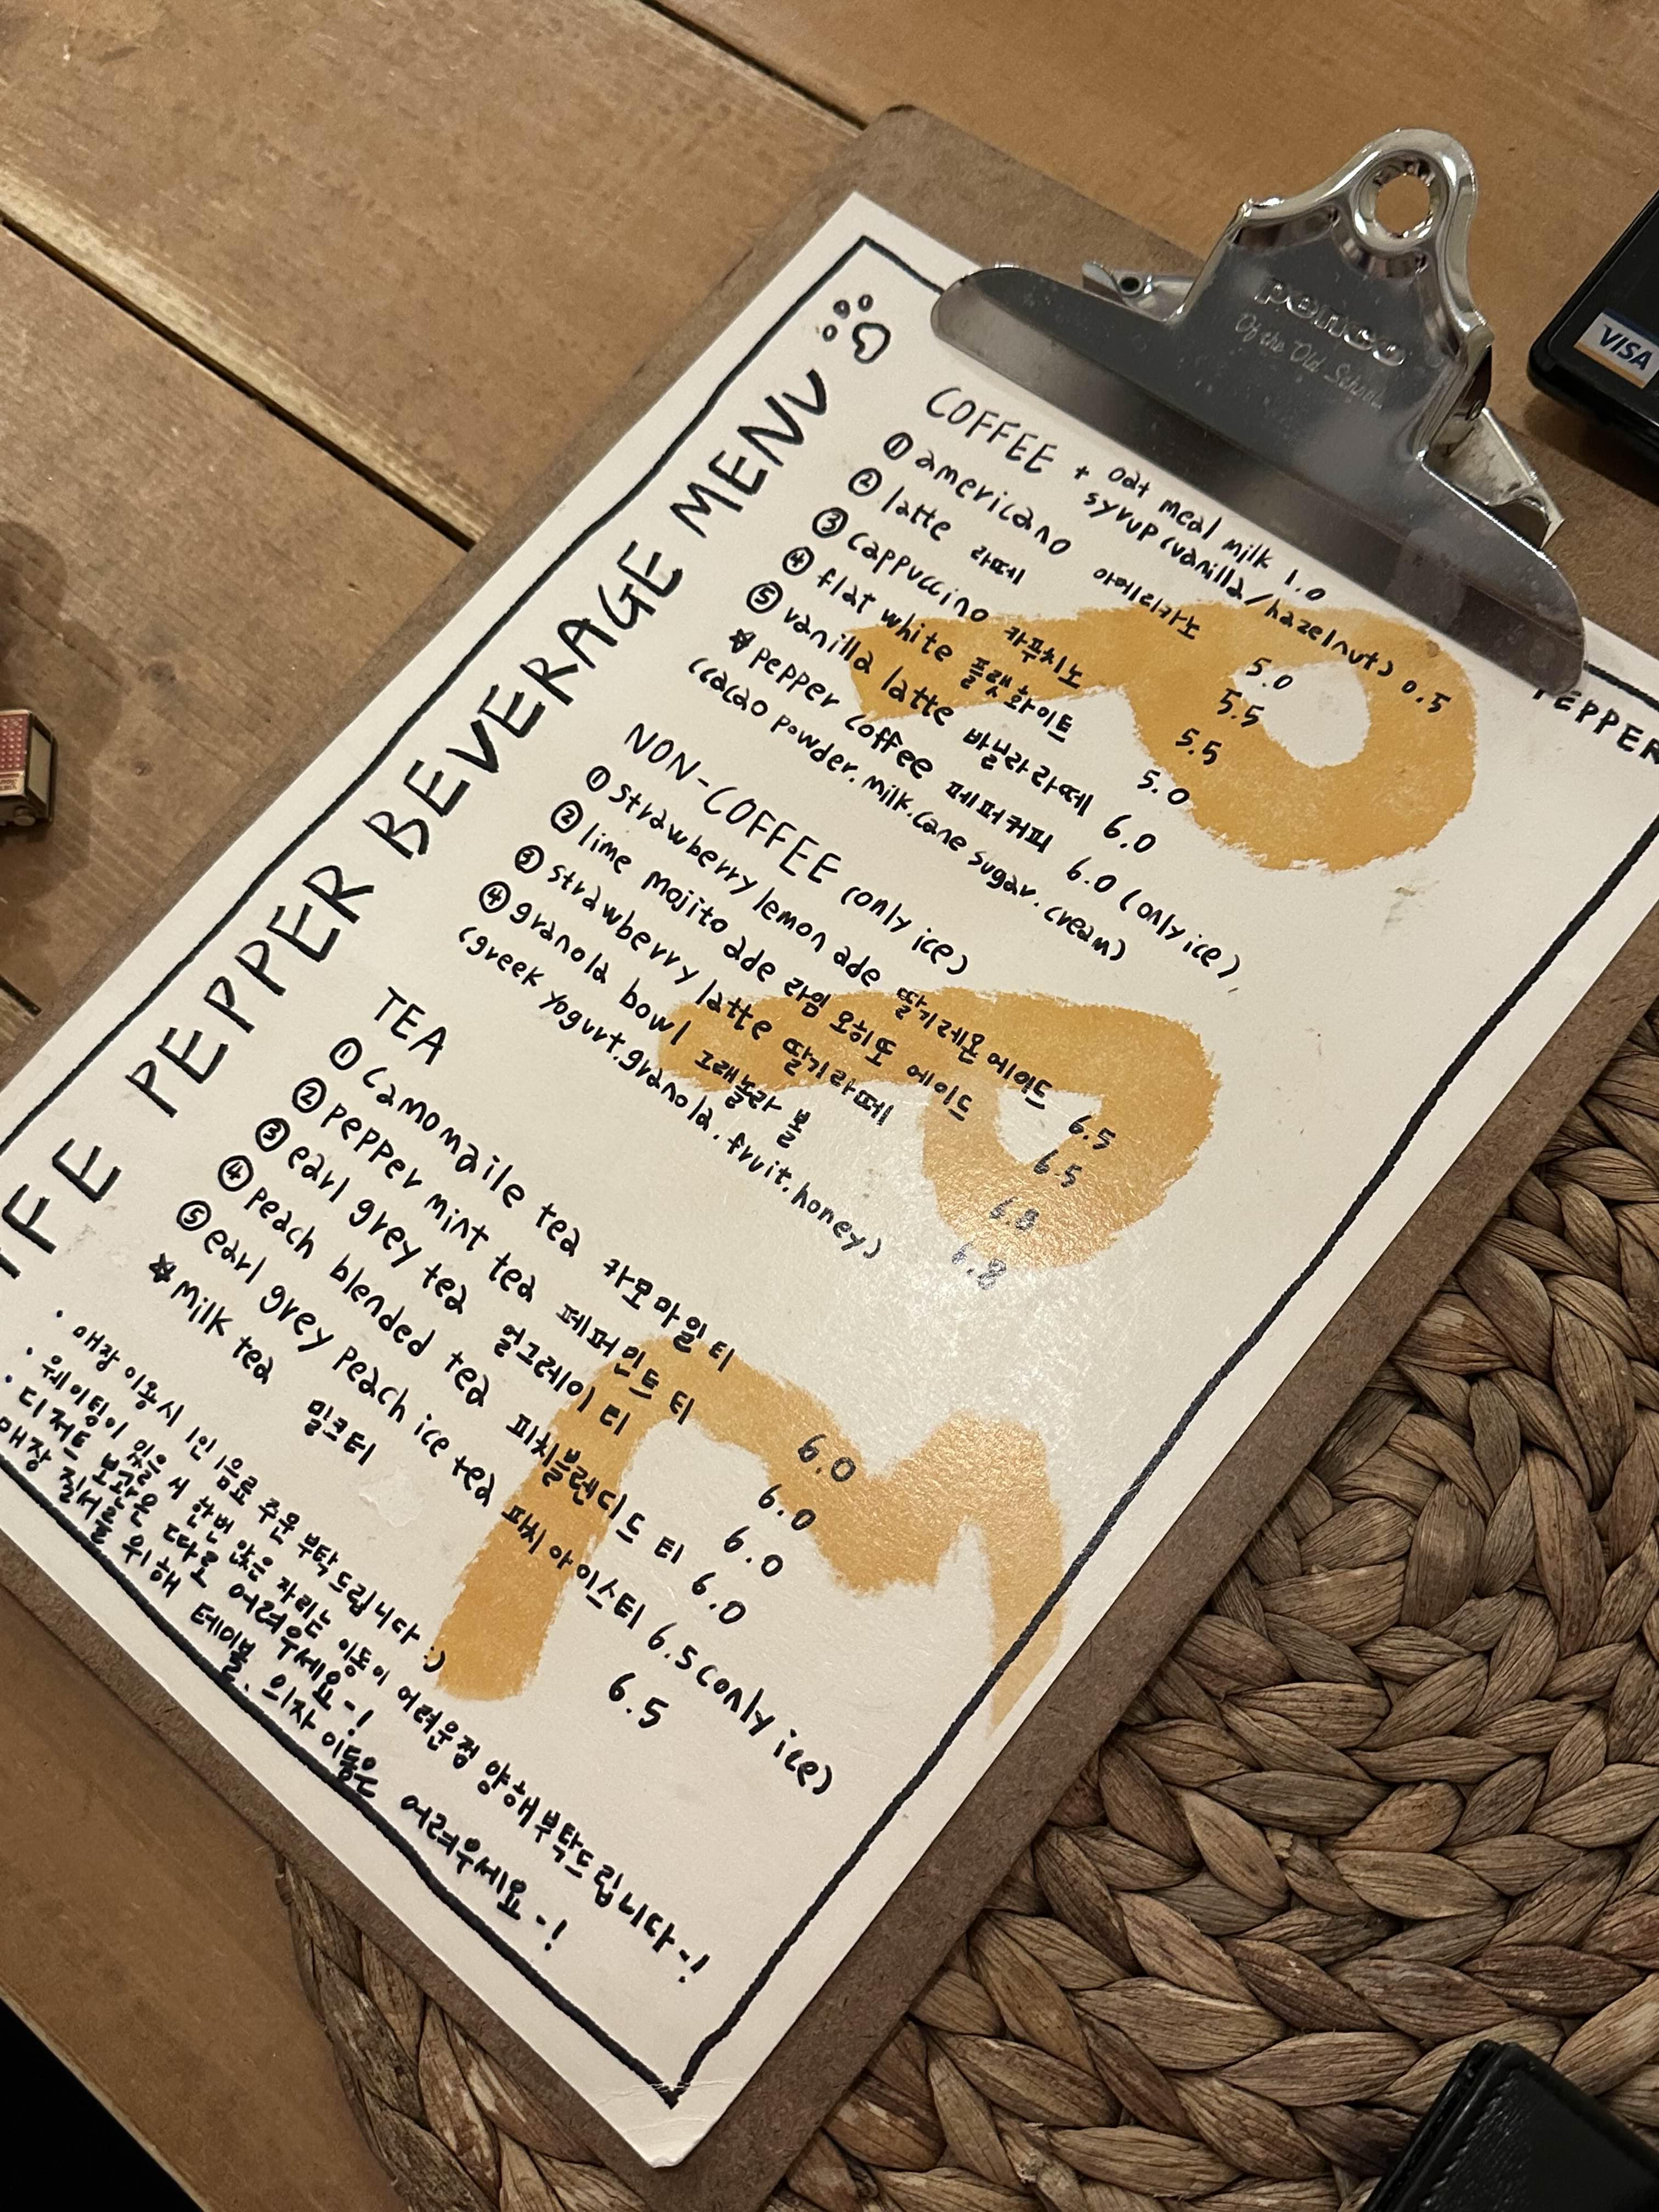 penco
Of the Old School
VISA
PEPPER
FE PEPPER BEVERAGE MENU
COFFEE + oat meal milk 1.0
syrup (vanilla/hazelnut) 0.5
① americano 아메리카노 5.0
② latte 라떼 5.5
③ cappuccino 카푸치노 5.5
④ flat white 플랫화이트 5.0
⑤ vanilla latte 바닐라라떼 6.0
☆ pepper coffee 페퍼커피 6.0 (only ice)
(cacao powder. milk. cane sugar. cream)
NON-COFFEE (only ice)
① strawberry lemon ade 딸기레몬 에이드 6.5
② lime mojito ade 라임 모히또 에이드 6.5
③ strawberry latte 딸기라떼 6.8
④ granola bowl 그래놀라 볼 6.8
(greek yogurt. granola. fruit. honey)
TEA
① camomaile tea 카모마일 티 6.0
② pepper mint tea 페퍼민트 티 6.0
③ earl grey tea 얼그레이 티 6.0
④ peach blended tea 피치블렌디드 티 6.0
⑤ earl grey peach ice tea 피치 아이스티 6.5 (only ice)
☆ milk tea 밀크티 6.5
· 매장 이용시 1인 1음료 주문 부탁드립니다 :)
· 웨이팅이 있을 시 한번 앉은 자리는 이동이 어려운점 양해부탁드립니다-!
· 디저트 보관은 따로 어려우세요-!
매장 질서를 위해 테이블, 의자 이동은 어려우세요-!